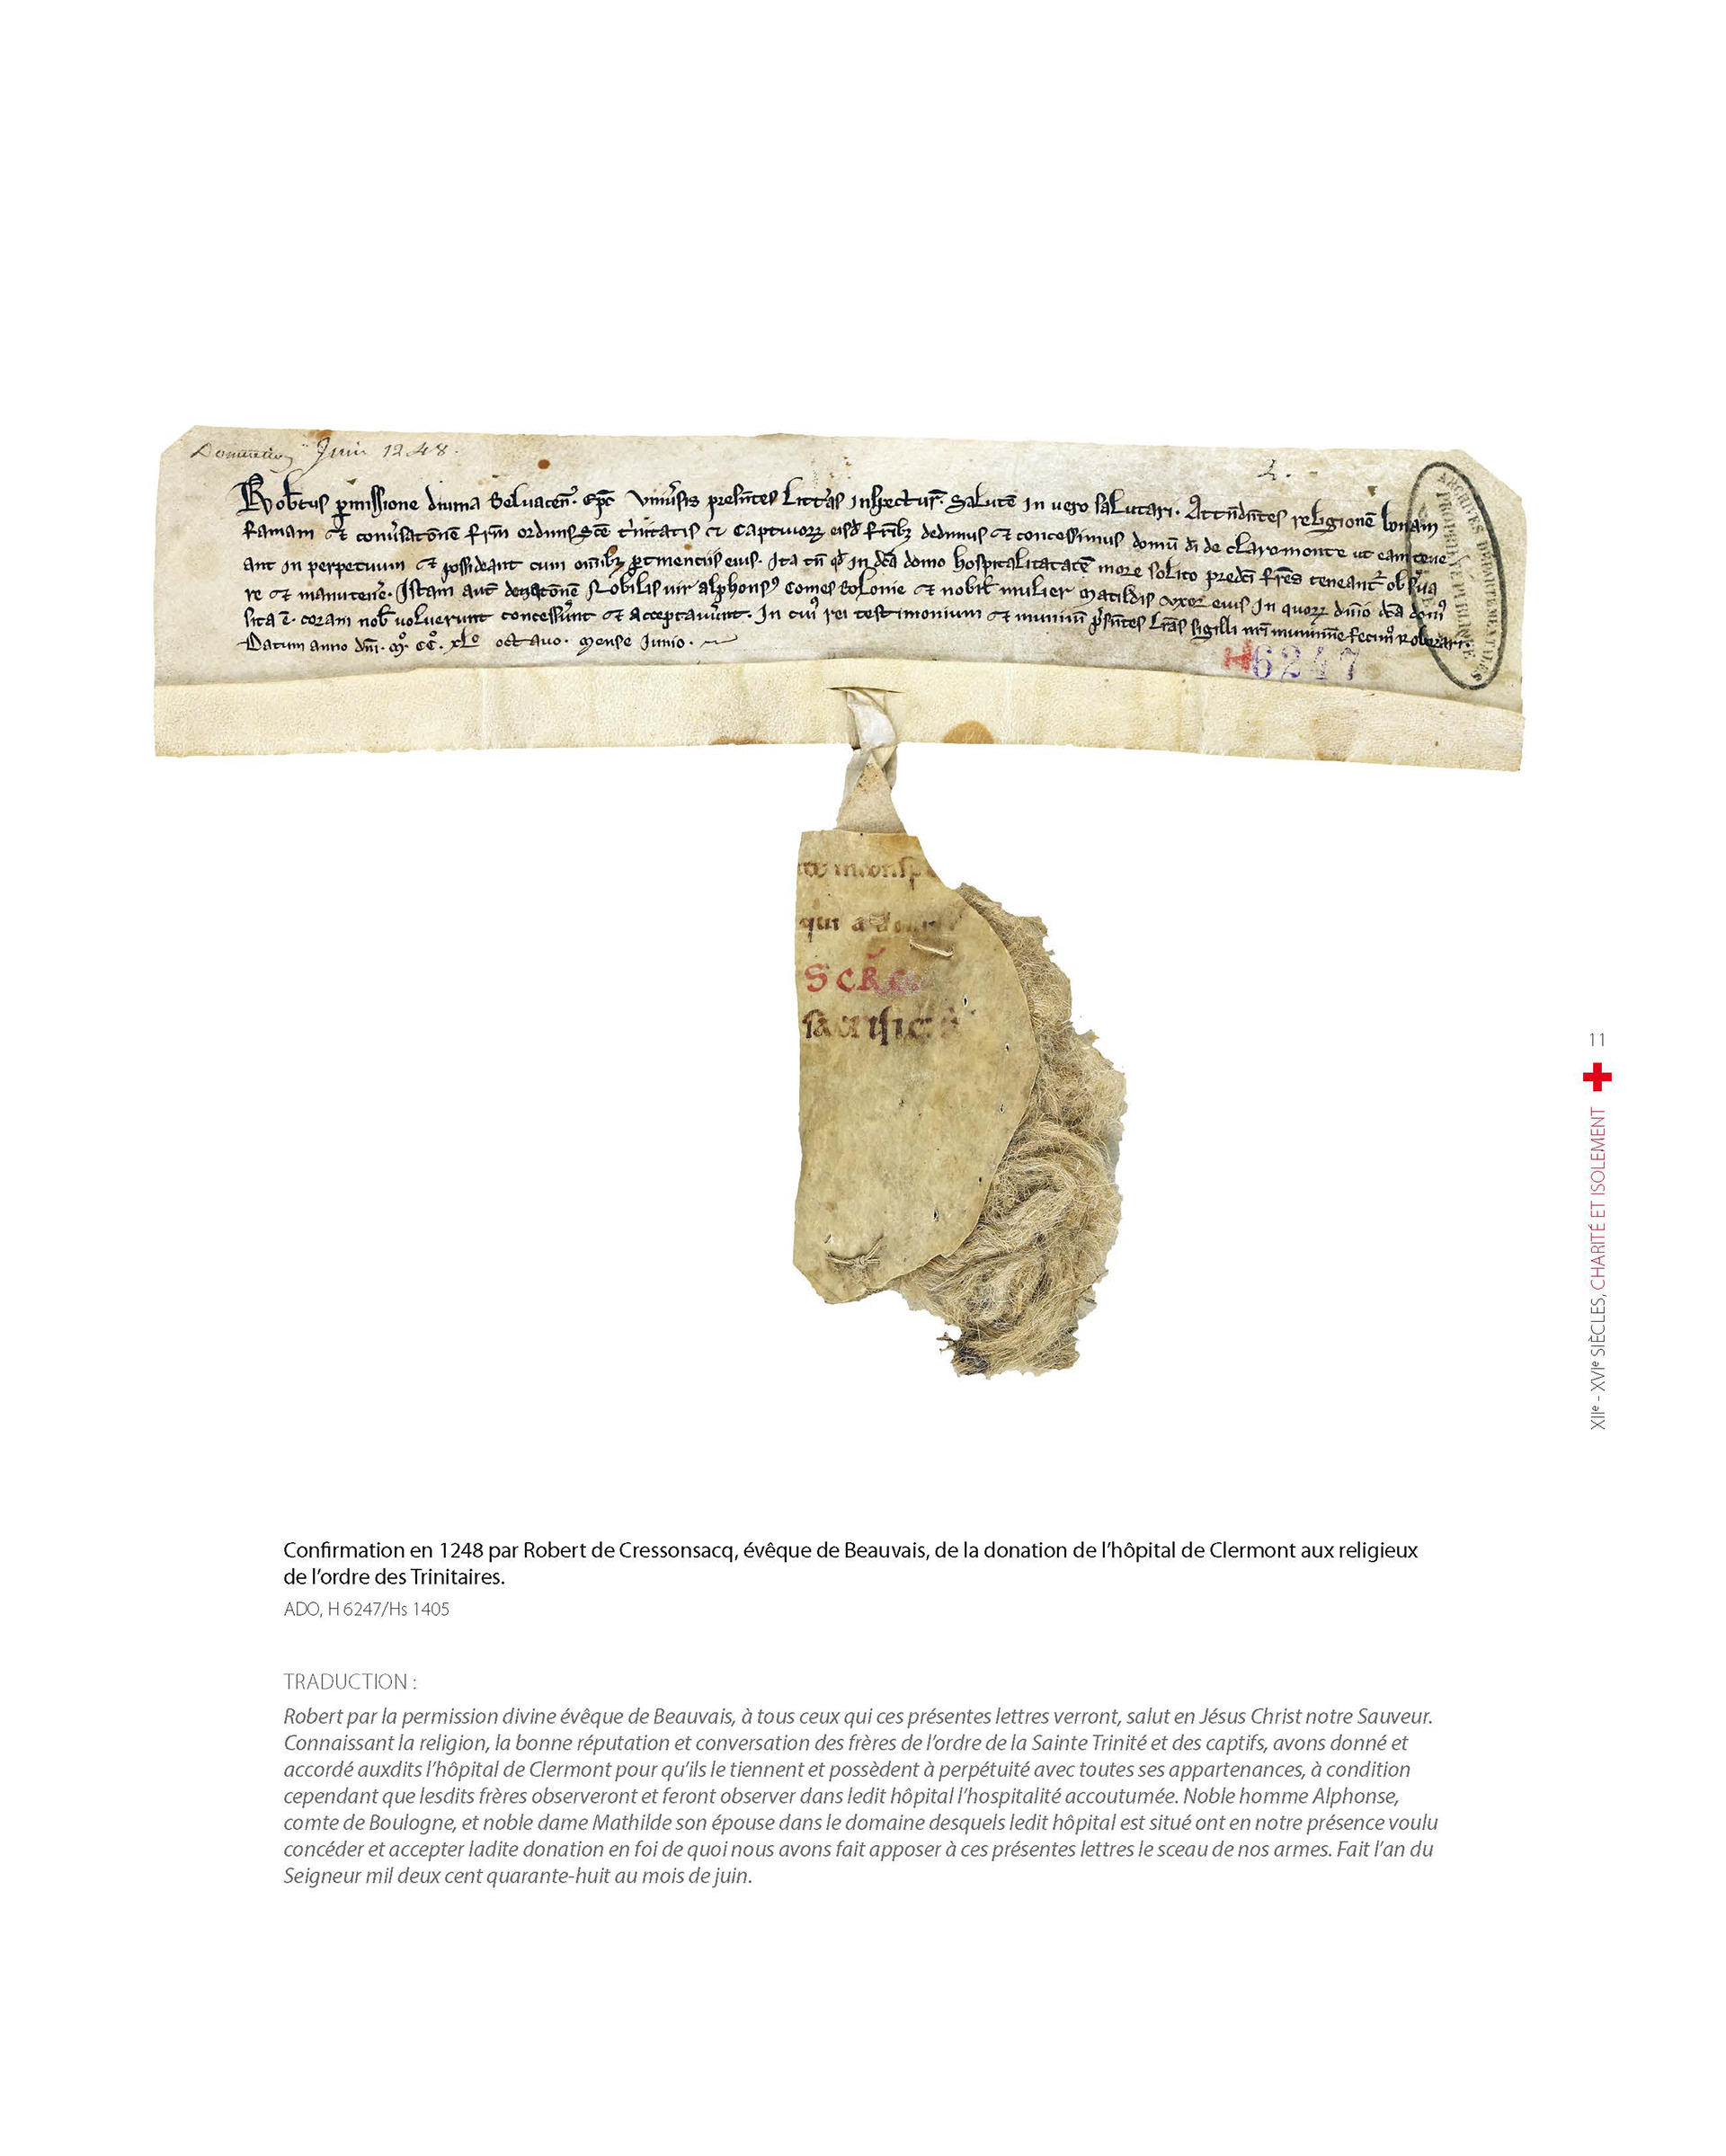 Donation Juin 1248.
Rob̄tus ꝑmissione diuina Beluacen̄. Ep̄c Vniu̾sis presn̄tes Litt̾as inspectur̾. Salutē in uero salutari. Attn̄dn̄tes religionē bonam
famam et conu̾satōnē fr̄m ordinis sc̄e t̾nitatis et Captiuoꝝ eisd̄ fr̄ibꝫ dedimus et concessimus domū di de claromonte ut eam tene
ant in perpetuum et possideant cum om̄ibꝫ ꝑtinenciis eius. Ita tn̄ qd̄ in dc̄a domo hospitalitatatē more solito predc̄i fr̄es teneant̾ obs̾ua
re et manutene̾. Istam aut̄ donatōnē Nobilis uir alphonsꝰ Comes Bolonie et nobil̄ mulier Matildis vxor eius in quoꝝ dn̄io dc̄a domꝰ
sita ē. coram nob̄ uoluerunt concess̾unt et acceptau̾unt. In cuiꝰ rei testimonium et munim̄ p̾sn̄tes Lr̄as sigilli nr̄i munimīe fecimꝰ roborari.
Datum anno dn̄i. Mº. CCº. xLº octauo. Mense Junio.
ARCHIVES DÉPARTEMENTALES
PROPRIÉTÉ PUBLIQUE
H 6247
qui a
S CR
11
XIIe - XVIe SIÈCLES, CHARITÉ ET ISOLEMENT
Confirmation en 1248 par Robert de Cressonsacq, évêque de Beauvais, de la donation de l'hôpital de Clermont aux religieux
de l'ordre des Trinitaires.
ADO, H 6247/Hs 1405
TRADUCTION :
Robert par la permission divine évêque de Beauvais, à tous ceux qui ces présentes lettres verront, salut en Jésus Christ notre Sauveur.
Connaissant la religion, la bonne réputation et conversation des frères de l'ordre de la Sainte Trinité et des captifs, avons donné et
accordé auxdits l'hôpital de Clermont pour qu'ils le tiennent et possèdent à perpétuité avec toutes ses appartenances, à condition
cependant que lesdits frères observeront et feront observer dans ledit hôpital l'hospitalité accoutumée. Noble homme Alphonse,
comte de Boulogne, et noble dame Mathilde son épouse dans le domaine desquels ledit hôpital est situé ont en notre présence voulu
concéder et accepter ladite donation en foi de quoi nous avons fait apposer à ces présentes lettres le sceau de nos armes. Fait l'an du
Seigneur mil deux cent quarante-huit au mois de juin.